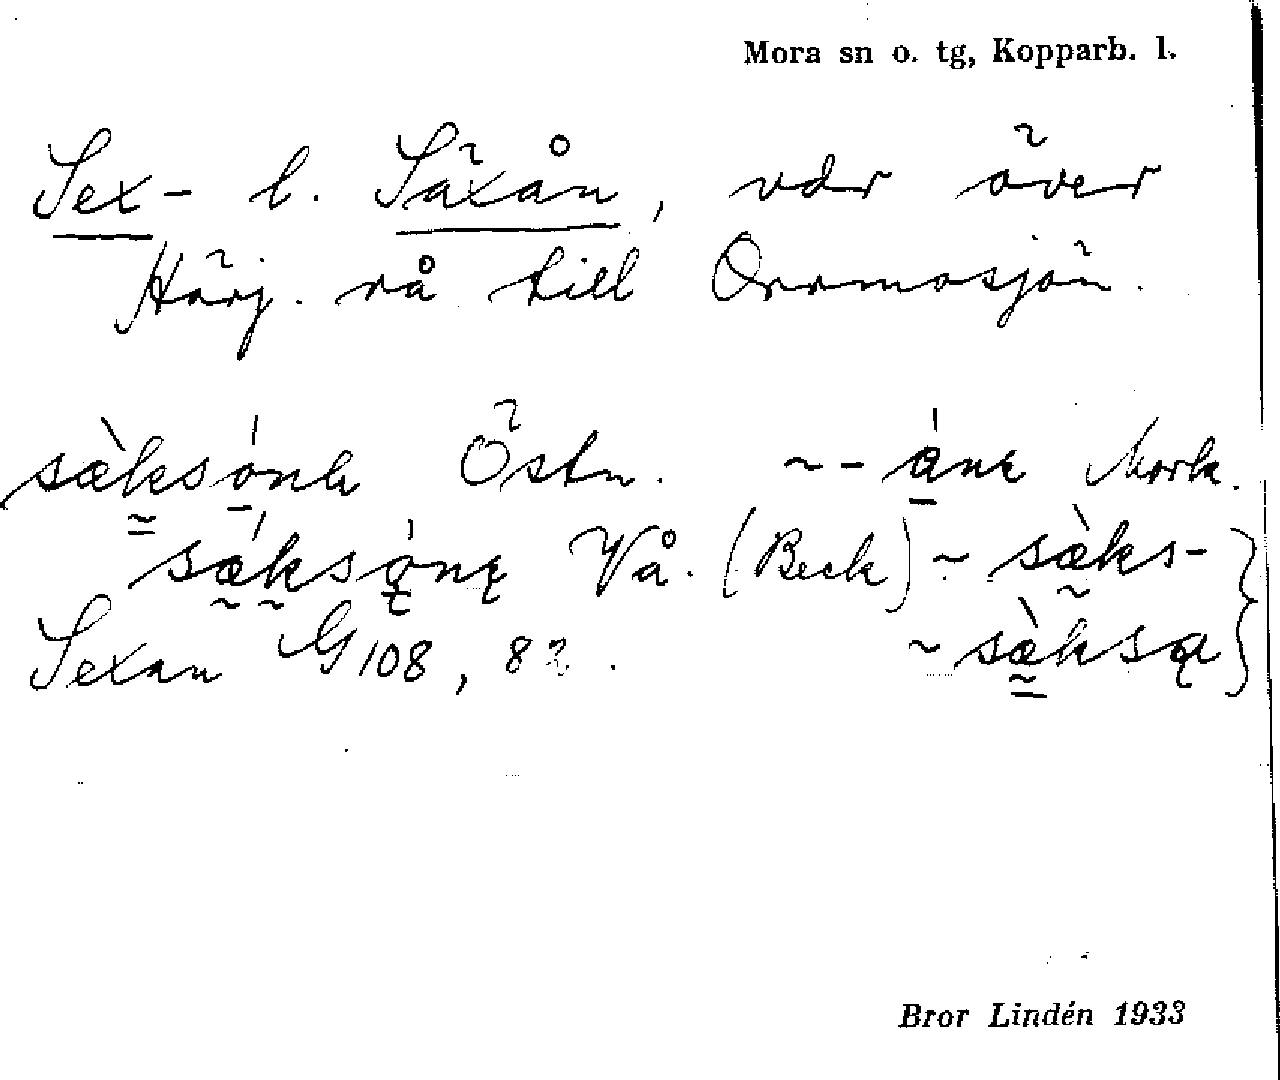 Mora sn o. tg, Kopparb. l.
Sex- l. Säxån, vdr över
Härj. rå till Orrmosjön.
sæ̀ksónh Östn. ~- áne Mork.
sǽksóne Vå. (Beck) ~ sæ̀ks-
Sexan G 108, 82. ~ sæ̀ksą
Bror Lindén 1933